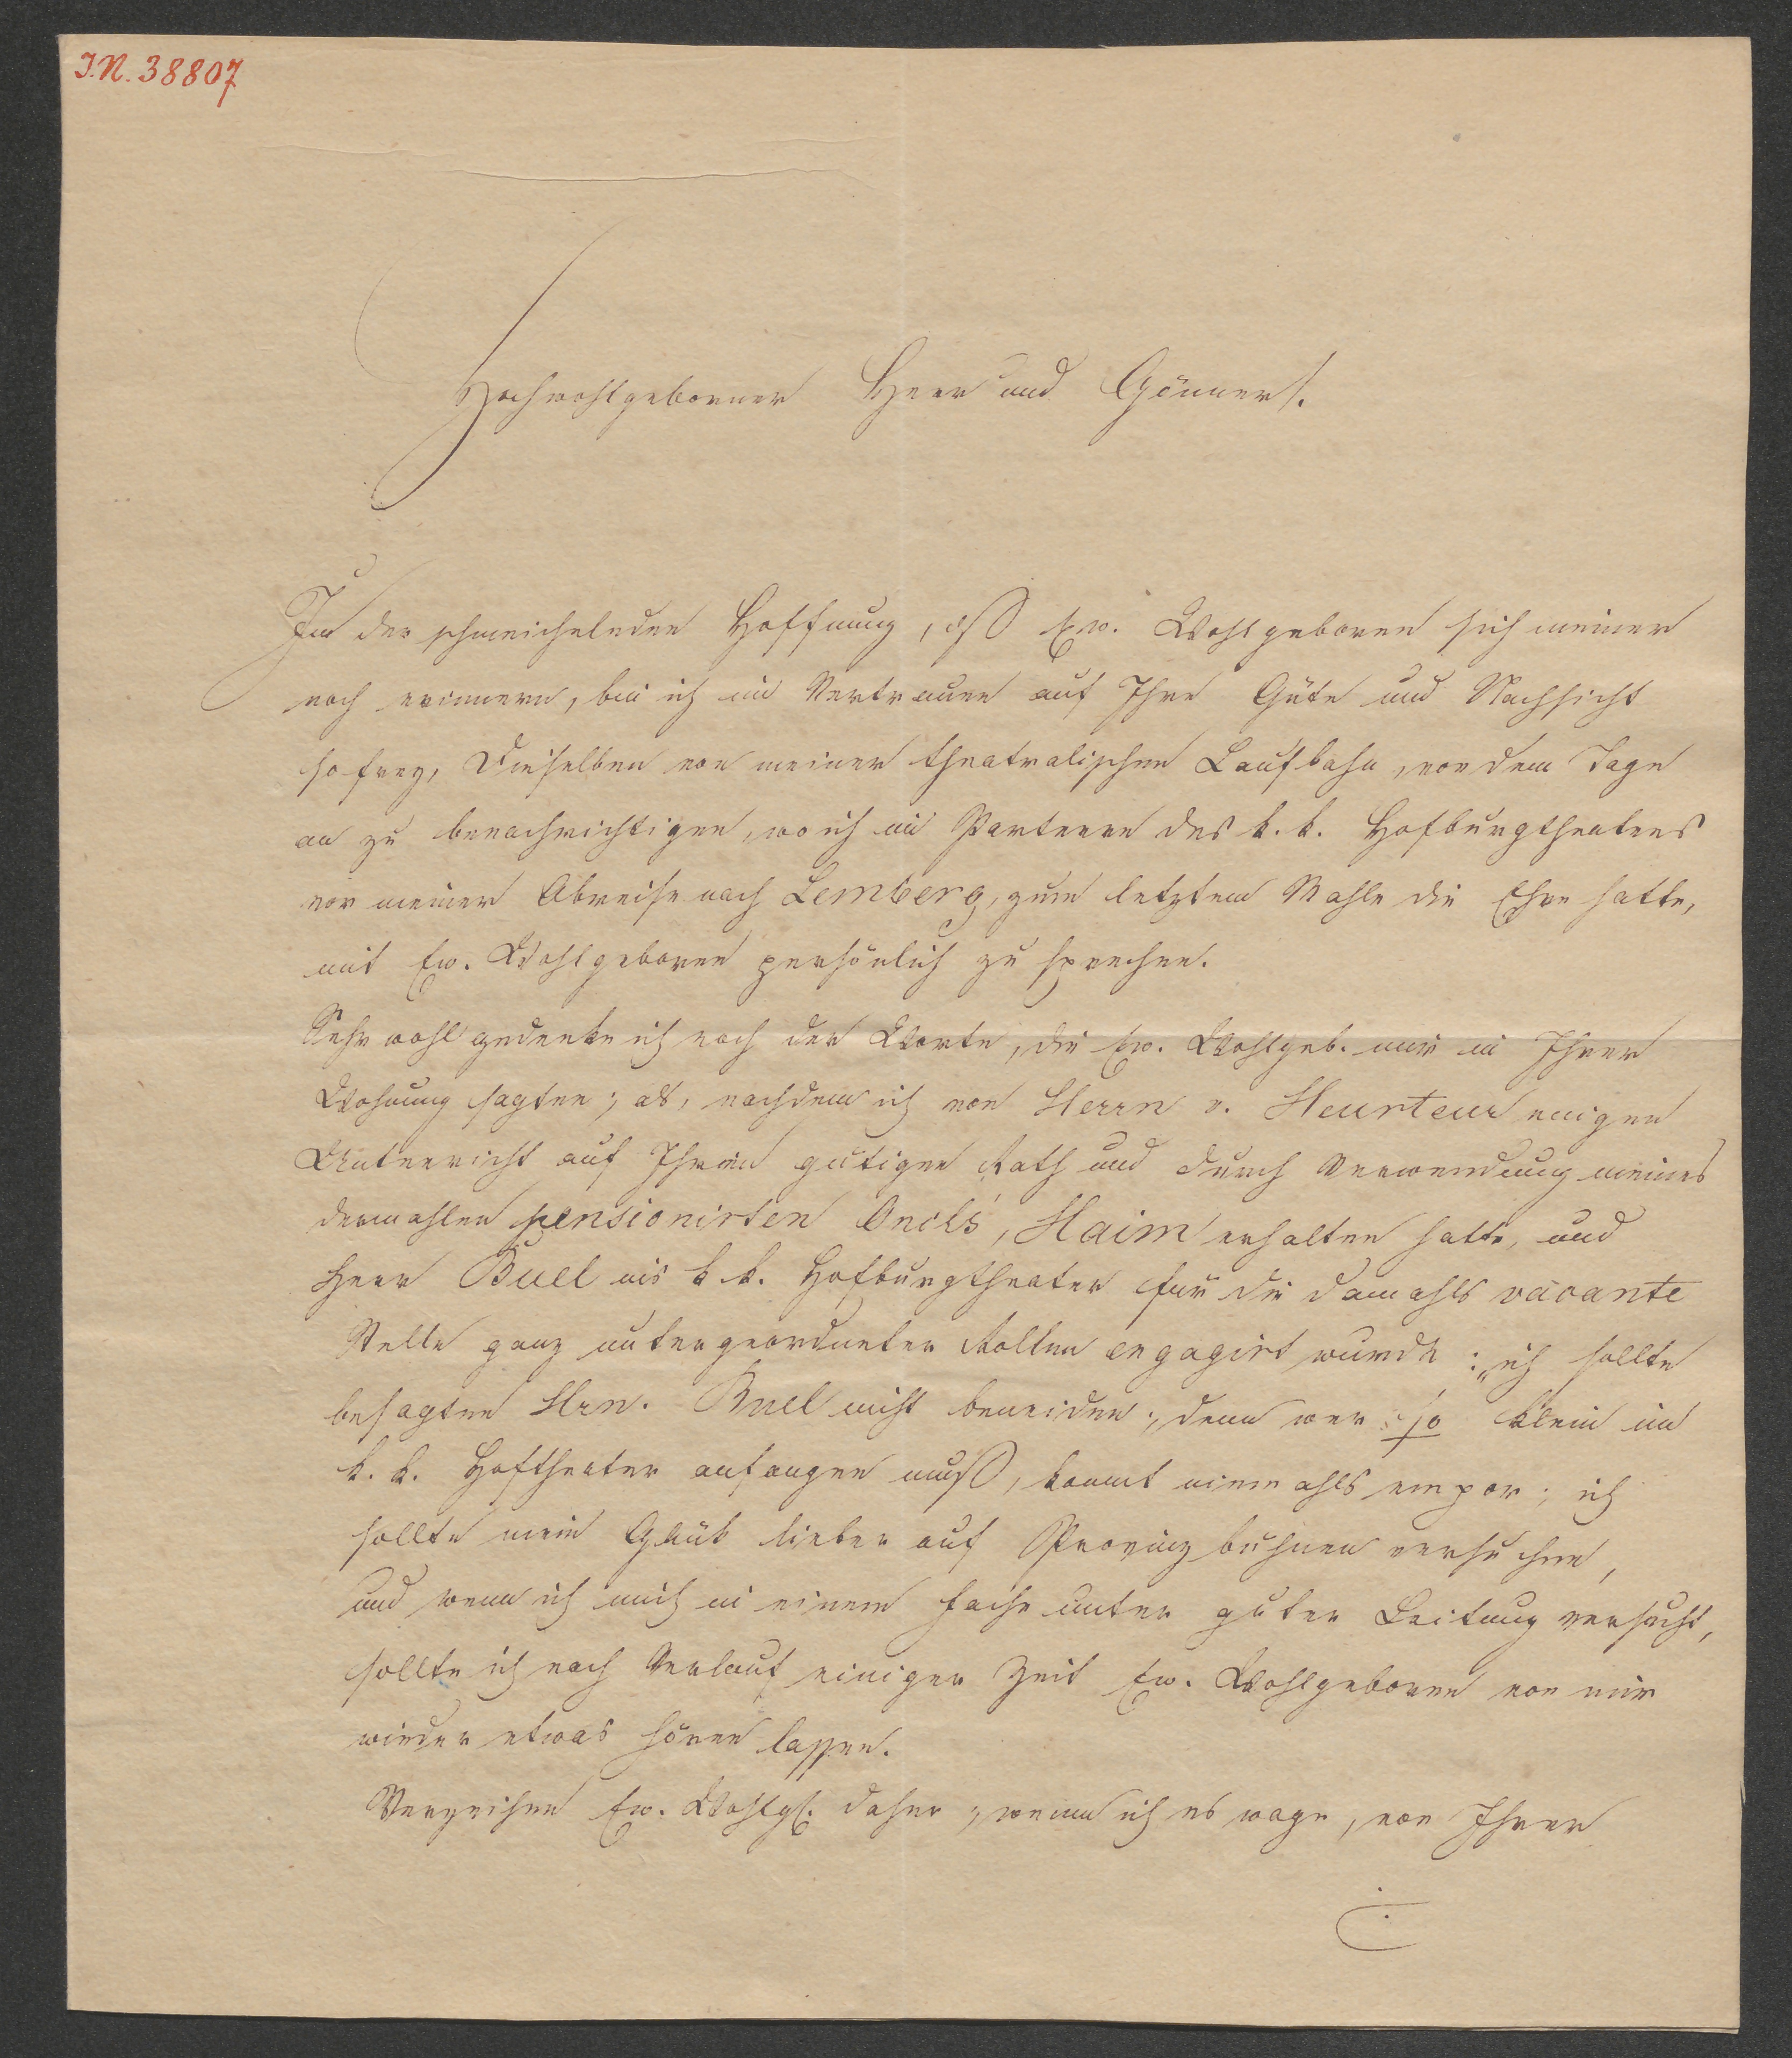 I.N. 38807
Hochwohlgeborner Herr und Gönner!
In der schmeichelnden Hoffnung, daß Ew. Wohlgeboren sich meiner
noch erinnern, bin ich im Vertrauen auf Ihre Güte und Nachsicht
so frey, Dieselben von meiner theatralischen Laufbahn, von dem Tage
an zu benachrichtigen, wo ich im Parterre des k. k. Hofburgtheaters
vor meiner Abreise nach Lemberg, zum letzten Mahle die Ehre hatte,
mit Ew. Wohlgeboren persönlich zu sprechen.
Sehr wohl gedenke ich noch der Worte, die Ew. Wohlgeb. mir in Ihrer
Wohnung sagten; als, nachdem ich von Herrn v. Heurteur einigen
Unterricht auf Ihren gütigen Rath und durch Verwendung meines
dermahlen pensionirten Oncls, Haim erhalten hatte, und
Herr Buel ins k. k. Hofburgtheater für die damahls vacante
Stelle ganz untergeordneter Rollen engagirt wurde: „ich sollte
besagten Hrn. Buel nicht beneiden; denn wer so klein im
k. k. Hoftheater anfangen muß, kommt niemahls empor; ich
sollte mein Glük lieber auf Provinzbühnen versuchen,
und wenn ich mich in einem Fache unter guter Leitung versucht,
sollte ich nach Verlauf einiger Zeit Ew. Wohlgeboren von mir
wieder etwas hören lassen.
Verzeihen Ew. Wohlgb. daher, wenn ich es wage, von Ihrer